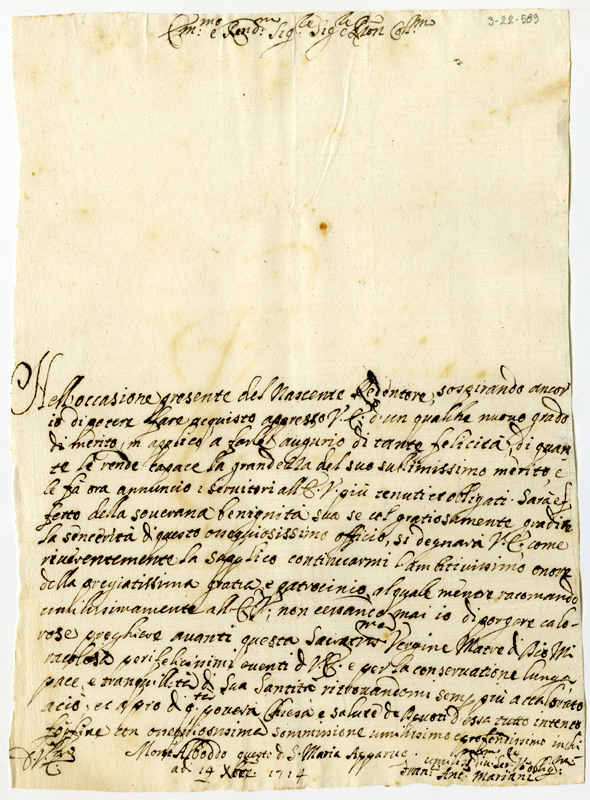 3-22-589
Em.mo e Rend.mo Sig.re Sig.re e Pron Coll.mo
Nell occasione presente del Nascente Redentore, sospirando ancor
io di potere fare acquisto appresso V. E. d'un qualche nuovo grado
di merito, m applico a farle augurio di tante felicità, di quan
te la rende capace la grandezza del suo sublimissimo merito e
le fà ora annuncio i servitori all E. V. più tenuti et obligati. Sarà ef
fetto della sovrana benignità sua se col gratiosamente gradire
la sencerità di questo ossequiosissimo officio, si degnarà V. E. come
riverentemente la supplico continuarmi l ambitissimo onore
della pregiatissima gratia, e patrocinio, al quale mentre racomando
umilissimamente all E. V., non cessando mai io di porgere calo-
rose preghiere avanti questa Sacratma Vergine Matre di Dio Mi
racolosa per i felicissimi eventi d V. E. e per la conservatione lunga
pace, e tranquillità di Sua Santità ritrovandomi sempre più accalorato
acciò, et a pro di q.ta povera Chiesa e salute de Devoti d'essa tutto intento
con ossequiosissima sommissione umilissimo e profondissimo inchi
D V. Em.
Mont Alboddo questo dì S. Maria Apparve
ad 14 Xbre 1714
Fran.co Ant.o Mariani